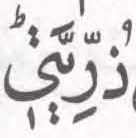 ذُرِّيَّتِيْؕ